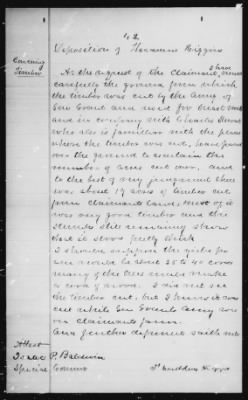 42
Deposition of Thurman Higgins
At the request of the Claimant, I have
carefully the ground from which
the timber was cut by the Army of
Gen Grant and used for
and in company with Charles
who also is familiar with the place
where the timber was cut, have
over the ground to ascertain the
number of acres cut over, and
to the best of my judgment there
was about 17 acres of timber cut
from claimants land, most of it
was very good timber and the
stumps still remaining shows
that it stood pretty thick
I should suppose the yield per
acre would be about 35 to 40 cords
many of the trees would make
a cord of wood. I did not see
the timber cut, but I know it was
cut while Gen Grants army was
on claimants farm.
And further deponent saith not
Attest
Isaac P. Baldwin
Special Commr